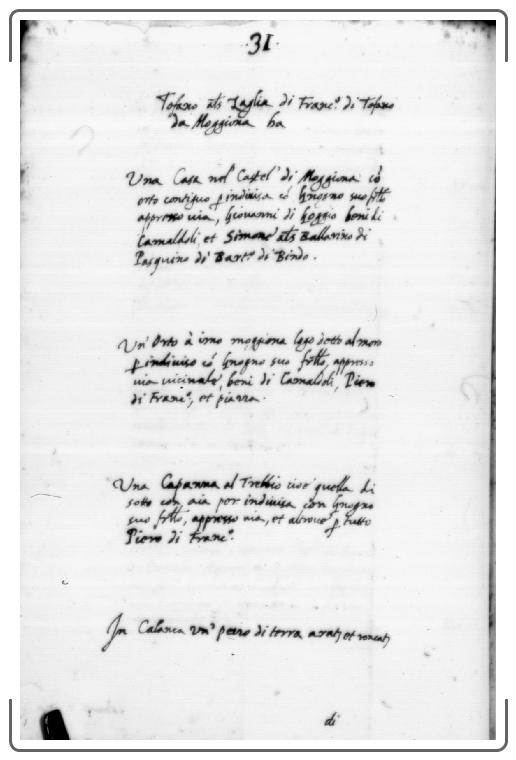 ·31·
Tofano als Zaglia di Franc.º di Tofano
da Moggiona ha
Una Casa nel Castel' di Moggiona cō
orto contiguo p indivisa cō Gnogno suo frllo
appresso via, Giovanni di Goggio beni di
Camaldoli, et Simone als Ballarino di
Pasquino di Bart.º di Bindo.
Un' Orto à imo moggiona lgo detto al moro
p indiviso cō Gnogno suo frllo, appresso
via vicinale, beni di Camaldoli, Piero
di Franc.º, et piazza.
Una Capanna al Trebbio cioe quella di
sotto con aia per indivisa con Gnogno
suo frllo, appresso via, et altrove p tutto
Piero di Franc.º.
In Calanca un' pezzo di terra arat; et roncat;
di